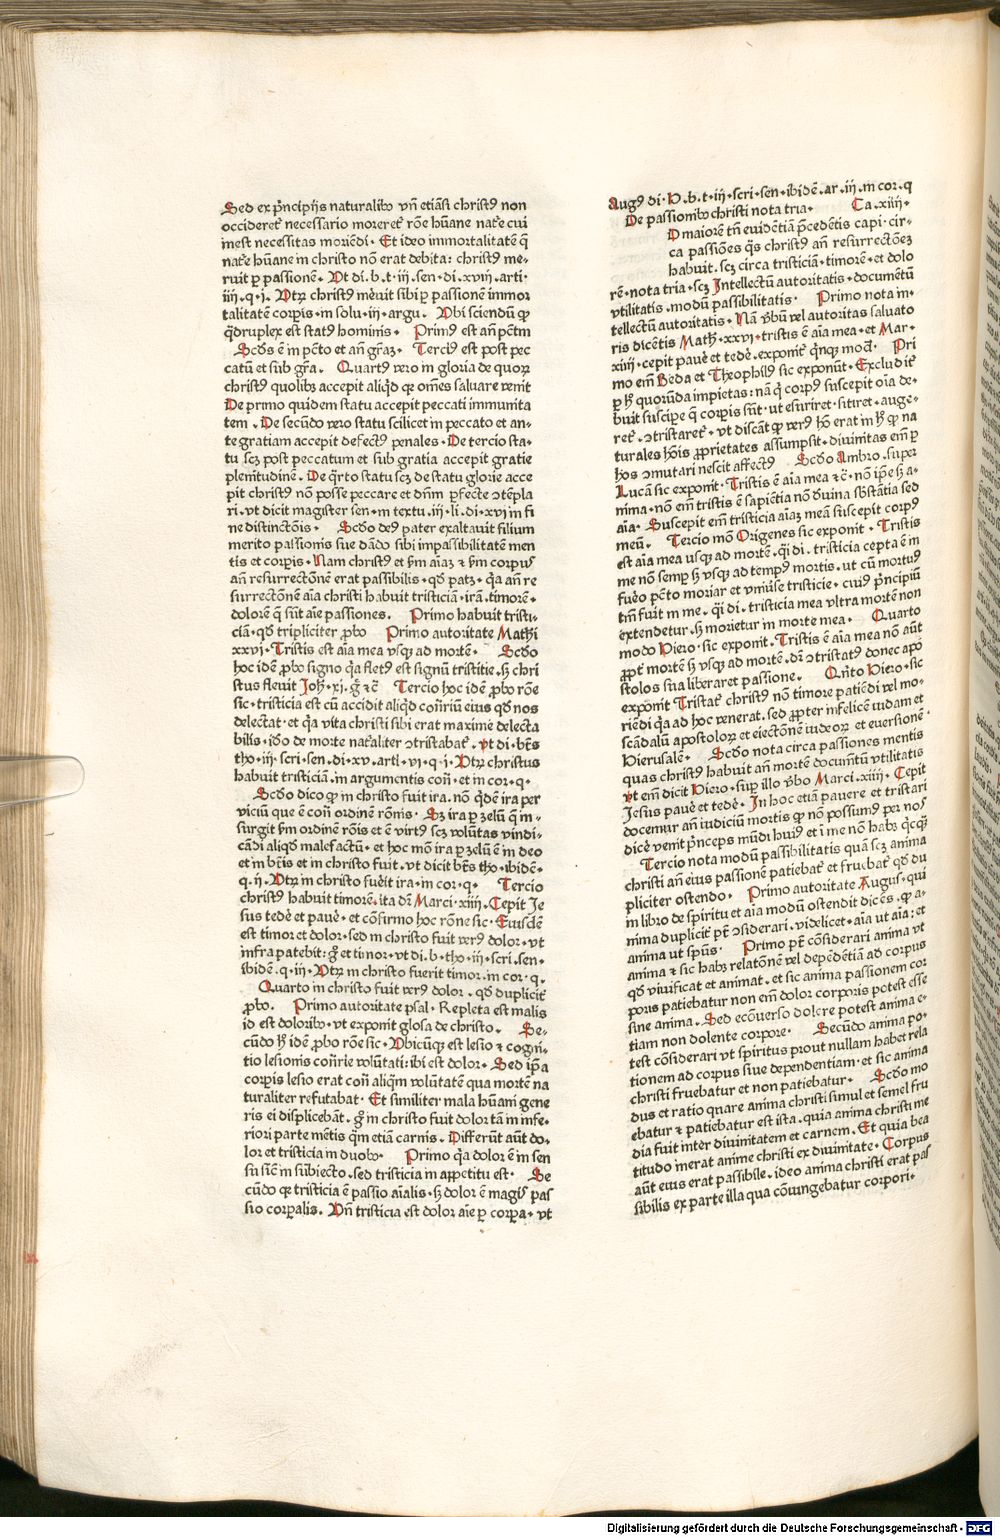 Sed ex pͥncipijs naturalibꝰ vñ etiãsi christꝰ non
occideret᷑ necessario moreret᷑ rõe hũane nat᷑e cui
inest necessitas moriẽdi. Et ideo immortalitatẽ q̃
nat᷑e hũane in christo nõ erat debita: christꝰ me-
ruit ꝑ passionẽ. Vt di. b. t. iij. sen. di. xviij. arti.
iiij. q. i. Vtꝝ christꝰ meruit sibi ꝑ passionẽ immor
talitatẽ corpis. in solu. in argu. Vbi sciendũ ꝙ
q̃druplex est statꝰ hominis. Primꝰ est añ pctm̃
Scds ẽ in pctõ et añ grãz. Terciꝰ est post pec
catũ et sub grã. Quartꝰ vero in gloria de quoꝝ
christꝰ quolibꝫ accepit aliqd̃ ꝙ om̃es saluare venit
De primo quidem statu accepit peccati immunita
tem. De secũdo vero statu scilicet in peccato et an-
te gratiam accepit defectꝰ penales. De tercio sta-
tu scꝫ post peccatum et sub gratia accepit gratie
plenitudinẽ. De q̃rto statu scꝫ de statu glorie acce
pit christꝰ nõ posse peccare et dñm ꝑfecte ↄtẽpla
ri. vt dicit magister sen. in textu. iij. li. di. xvi in fi
ne distinctõis. Scdo deꝰ pater exaltauit filium
merito passionis sue dãdo sibi impassibilitatẽ men
tis et corpis. Nam christꝰ et ẜm aĩaꝫ ⁊ ẜm corpus
añ resurrectõnẽ erat passibilis. qd̃ patꝫ. q̃a añ re
surrectõnẽ aĩa christi habuit tristiciã. irã. timorẽ.
dolorẽ q̃ sũt aĩe passiones. Primo habuit tristi-
ciã. qd̃ tripliciter ꝓbo Primo autoritate Mathi
xxvi. Tristis est aĩa mea vsqꝫ ad mortẽ. Scdo
hoc idẽ ꝓbo signo q̃a fletꝰ est signũ tristitie. ẜ chri
stus fleuit Joh. xi. g̃ ⁊ c̃ Tercio hoc idẽ ꝓbo rõe
sic. tristicia est cũ accidit aliqd̃ cõriũ eius qd̃ nos
delectat. et q̃a vita christi sibi erat maxime delecta
bilis. iõo de morte nat᷑aliter ↄtristabat᷑. vt di. bt̃s
tho. iij. scri. sen. di. xv. arti. vi. q. i. Vtꝝ christus
habuit tristiciã. in argumentis coñ. et in cor. q.
Scdo dico ꝙ in christo fuit ira. nõ q̃dẽ ira per
viciũ que ẽ coñ ordinẽ rõnis. Sꝫ ira ꝑ zelũ q̃ in-
surgit ẜm ordinẽ rõis et ẽ virtꝰ scꝫ volũtas vindi-
cãdi aliqd̃ malefactũ. et hoc mõ ira ꝑ zelũ ẽ in deo
et in bt̃is et in christo fuit. vt dicit bt̃s tho. ibidẽ.
q. ij. Vtꝝ in christo fuerit ira. in cor. q. Tercio
christꝰ habuit timorẽ. ita dr̃ Marci. xiiij. Cepit Je
sus tedẽ et pauẽ. et cõfirmo hoc rõne sic. Eiusdẽ
est timor et dolor. sed in christo fuit verꝰ dolor. vt
infra patebit: g̃ et timor. vt di. b. tho. iij. scri. sen.
ibidẽ. q. iij. Vtꝝ in christo fuerit timor. in cor. q.
Quarto in christo fuit verꝰ dolor. qd̃ duplicit᷑
ꝓbo. Primo autoritate psal. Repleta est malis
id est doloribꝰ. vt exponit glosa de christo. Se-
cũdo ẜ idẽ ꝓbo rõe sic. Vbicũqꝫ est lesio ⁊ cogni-
tio lesionis coñrie volũtati: ibi est dolor. Sed ip̃a
corpis lesio erat coñ aliqm̃ volũtatẽ qua mortẽ na
turaliter refutabat. Et similiter mala hũani gene
ris ei displicebãt. g̃ in christo fuit dolor tã in infe-
riori parte mẽtis q̃m etiã carnis. Differũt aũt do-
lor et tristicia in duobꝰ. Primo q̃a dolor ẽ in sen
su siẽ in subiecto. sed tristicia in appetitu est. Se
cũdo qꝫ tristicia ẽ passio aĩalis. ẜ dolor ẽ magis pas
sio corpalis. Vñ tristicia est dolor aĩe ꝑ corpa. vt
Augꝰ di. P. b. t. iij. scri. sen. ibidẽ. ar. iij. in cor. q
De passionibꝰ christi nota tria. Ca. xiiij.
D maiorẽ tñ euidẽtiã p̃cedẽtis capi. cir-
ca passiões q̃s christꝰ añ resurrectõeꝫ
habuit. scꝫ circa tristiciã. timorẽ. et dolo
rẽ. nota tria. scꝫ Intellectũ autoritatis. documẽtũ
vtilitatis. modũ passibilitatis. Primo nota in-
tellectũ autoritatis. Nã v̓bũ vel autoritas saluato
ris dicẽtis Math. xxvi. tristis ẽ aĩa mea. et Mar.
xiiij. cepit pauẽ et tedẽ. exponit᷑ q̃nqꝫ mod̃. Pri
mo em̃ Beda et Theophilꝰ sic exponũt. Excludit᷑
ꝑ ẜ quorũda impietas: nã q̃ corpꝰ suscepit oĩa de-
buit suscipe q̃ corpis sũt. ut esuriret. sitiret. auge-
ret᷑. ↄtristaret᷑. vt discãt ꝙ verꝰ hõ erat in ẜ ꝙ na
turales hõis ꝓprietates assumpsit. diuinitas em̃ ꝑ
hõs ↄmutari nescit affectꝰ Scdo Ambro. super
Lucã sic exponit. Tristis ẽ aĩa mea ⁊ c̃. nõ ip̃e ẜ a-
nima. nõ em̃ tristis ẽ sapiẽtia nõ diuina sb̃stãtia sed
aĩa. Suscepit em̃ tristicia aĩaꝫ meã suscepit corpꝰ
meũ. Tercio mõ Origenes sic exponit. Tristis
est aĩa mea usqꝫ ad mortẽ. q̃i di. tristicia cepta ẽ in
me nõ semp ẜ vsqꝫ ad tempꝰ mortis. ut cũ mortuꝰ
fuẽo pctõ moriar et vniũse tristicie. cuiꝰ pͥncipiũ
tm̃ fuit in me. q̃i di. tristicia mea vltra mortẽ non
extendetur. ẜ morietur in morte mea. Quarto
modo Hiero. sic exponit. Tristis ẽ aĩa mea nõ aũt
ꝓpt᷑ mortẽ ẜ vsqꝫ ad mortẽ. dũ ↄtristatꝰ donec apo
stolos sua liberaret passione. Qñto Hiero. sic
exponit Tristat᷑ christꝰ nõ timore patiẽdi vel mo-
riẽdi q̃a ad hoc venerat. sed ꝓpter infelicẽ iudam et
scãdalũ apostoloꝝ et eiectõnẽ iudeoꝝ et euersionẽ
Hierusalẽ. Scdo nota circa passiones mentis
quas christꝰ habuit añ mortẽ documẽtũ vtilitatis
vt em̃ dicit Hiero. sup illo v̓bo Marci. xiiij. Cepit
Jesus pauẽ et tedẽ. In hoc etiã pauere et tristari
docemur añ iudiciũ mortis ꝙ nõ possumꝰ per nos
dicẽ venit pͥnceps mũdi huiꝰ et ĩ me nõ habꝫ q̃cqꝫ
Tercio nota modũ passibilitatis quã scꝫ anima
christi añ eius passionẽ patiebat᷑ et fruebat᷑ qd̃ du
pliciter ostendo. Primo autoritate Augus. qui
in libro de spiritu et aĩa modũ ostendit dicẽs. ꝙ a-
nima duplicit᷑ pt̃ ↄsiderari. videlicet. aĩa ut aĩa: et
anima ut spũs. Primo pt̃ cõsiderari anima vt
anima ⁊ sic habꝫ relatõnẽ vel depẽdẽtiã ad corpus
qd̃ viuificat et animat. et sic anima passionem cor
poris patiebatur non em̃ dolor corporis potest esse
sine anima. Sed ecõuerso dolere potest anima e-
tiam non dolente corpore. Secũdo anima po-
test cõsiderari vt spiritus prout nullam habet rela
tionem ad corpus siue dependentiam. et sic anima
christi fruebatur et non patiebatur. Scdo mo
dus et ratio quare anima christi simul et semel fru
ebatur ⁊ patiebatur est ista. quia anima christi me
dia fuit inter diuinitatem et carnem. Et quia bea
titudo inerat anime christi ex diuinitate. Corpus
aũt eius erat passibile. ideo anima christi erat pas
sibilis ex parte illa qua cõiungebatur corpori.
Digitalisierung gefördert durch die Deutsche Forschungsgemeinschaft - DFG